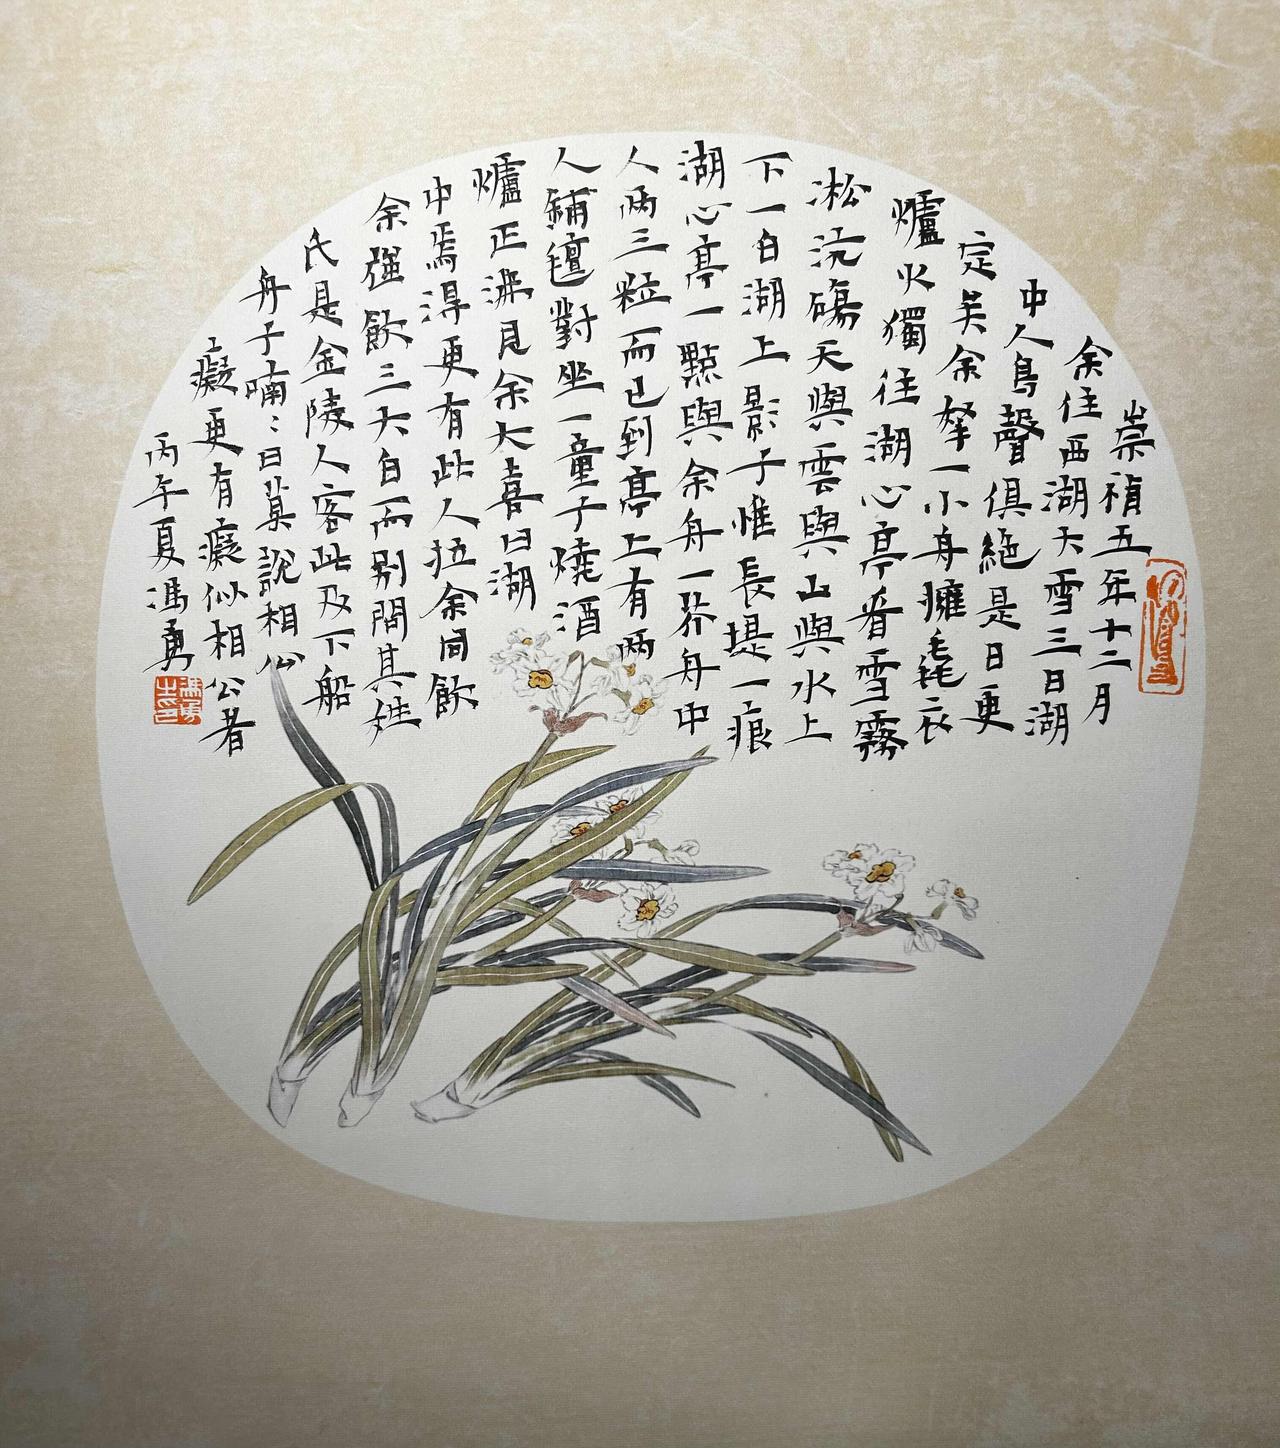 崇禎五年十二月
余住西湖大雪三日湖
中人鳥聲俱絶是日更
定矣余拏一小舟擁毳衣
爐火獨往湖心亭看雪霧
凇沆碭天與雲與山與水上
下一白湖上影子惟長堤一痕
湖心亭一點與余舟一芥舟中
人兩三粒而已到亭上有兩
人鋪氊對坐一童子燒酒
爐正沸見余大喜曰湖
中焉得更有此人拉余同飲
余强飲三大白而别問其姓
氏是金陵人客此及下船
舟子喃〻曰莫説相公
癡更有癡似相公者
丙午夏馮勇